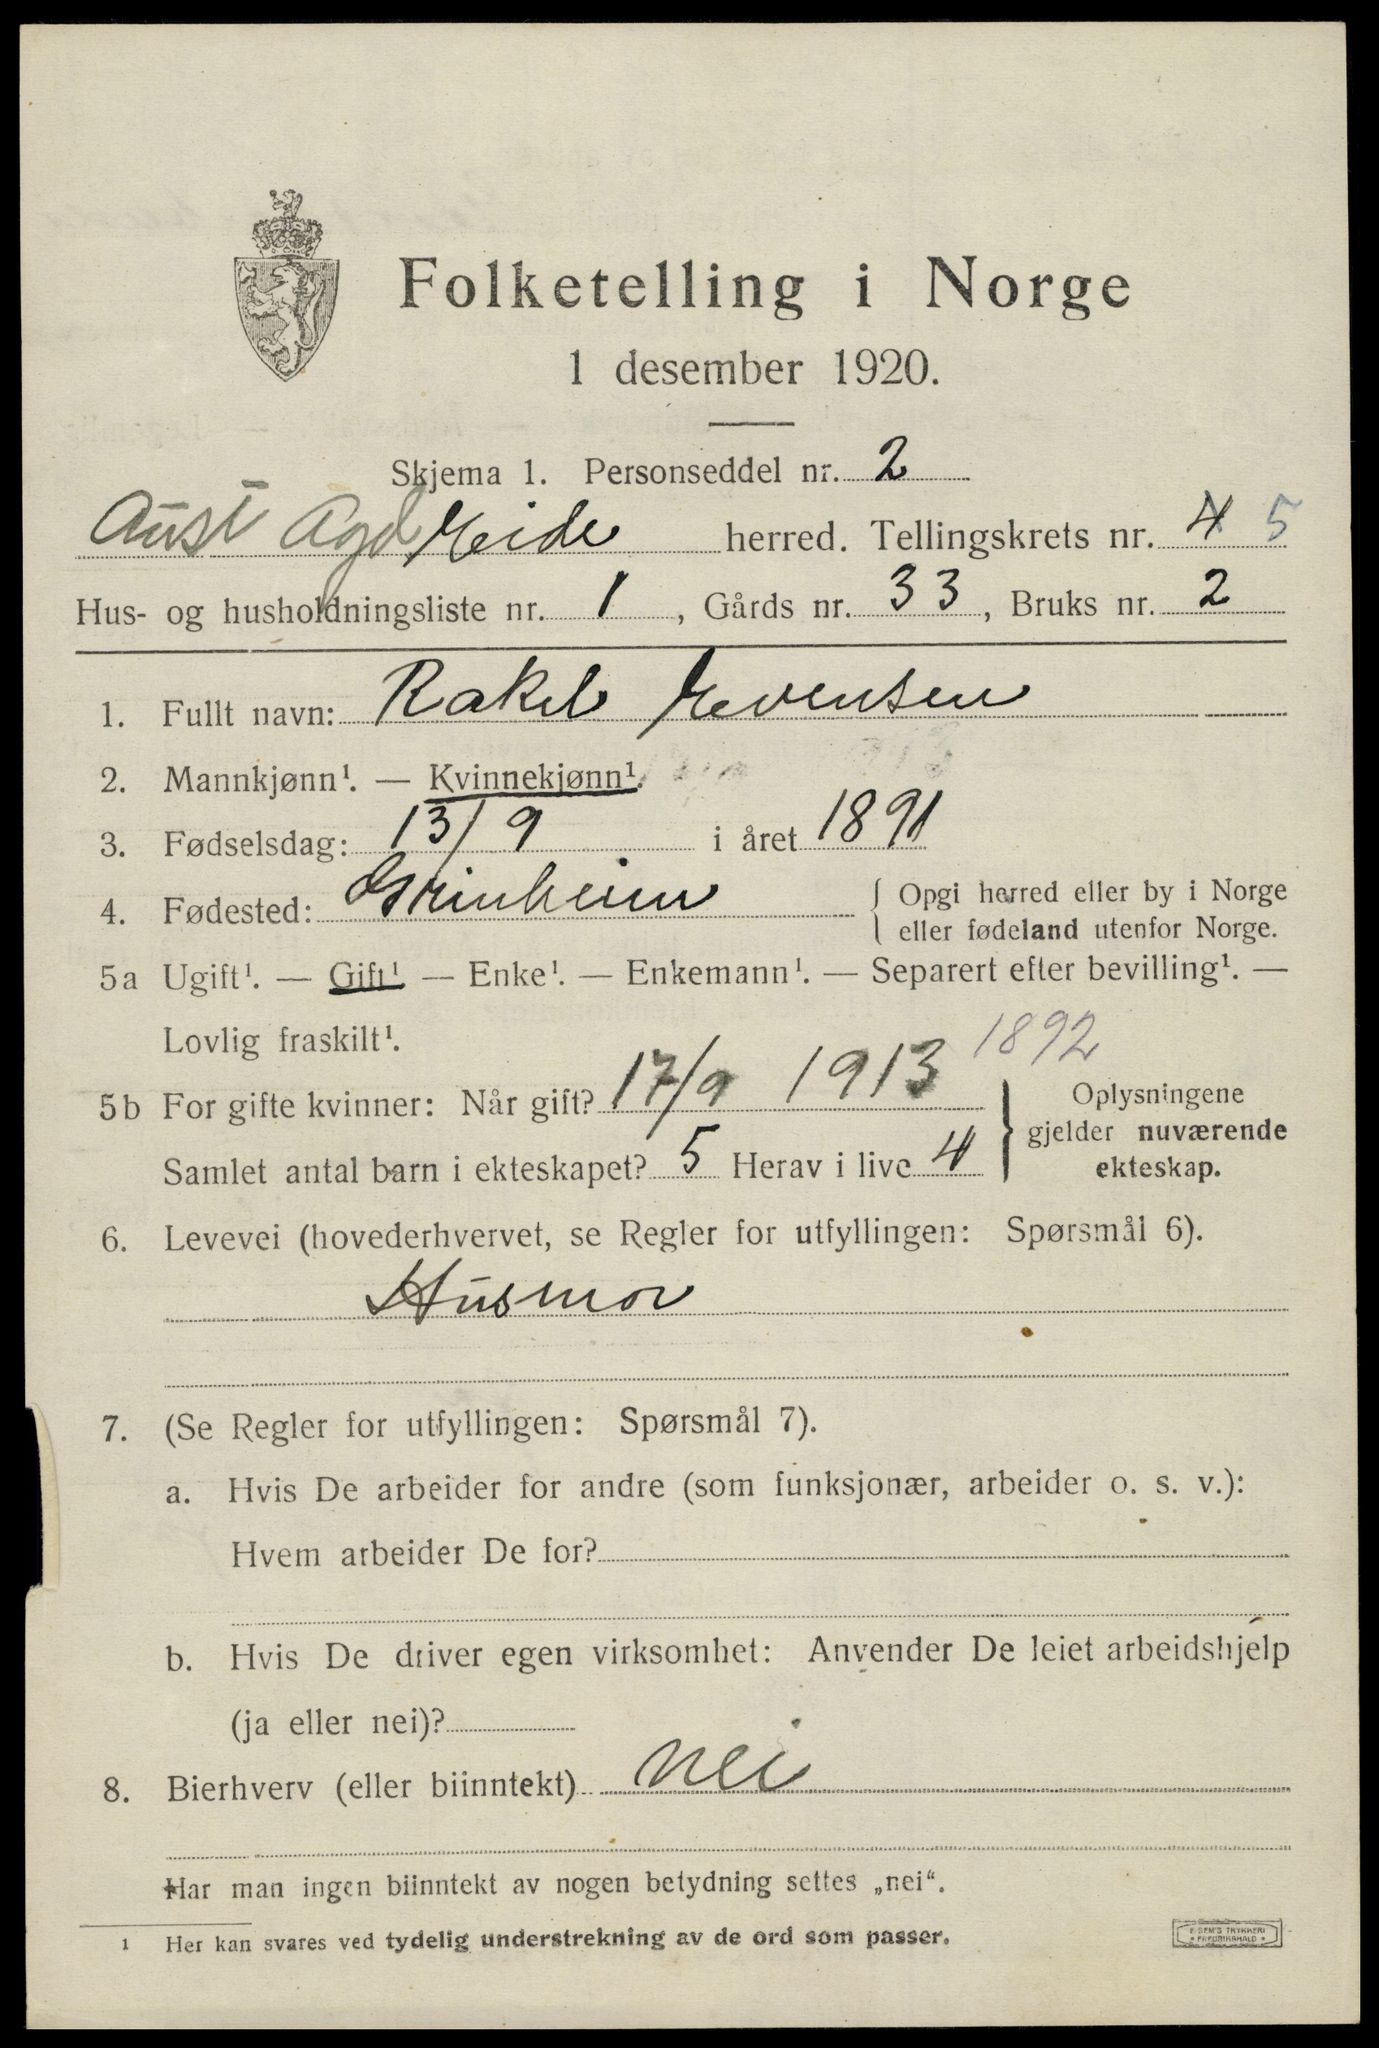 Folketelling i Norge
1 desember 1920.
Skjema 1. Personseddel nr. 2
Aust Agd Eide herred. Tellingskrets nr. 4 5
Hus- og husholdningsliste nr. 1, Gårds nr. 33, Bruks nr. 2
1. Fullt navn: Rakel Evensen
2. Mannkjønn¹. — Kvinnekjønn¹.
3. Fødselsdag: 13/9 i året 1891
4. Fødested: Grinheim { Opgi herred eller by i Norge
eller fødeland utenfor Norge.
5a Ugift¹. — Gift¹ — Enke¹. — Enkemann¹. — Separert efter bevilling¹. —
Lovlig fraskilt¹.
1892
5b For gifte kvinner: Når gift? 17/9 1913 } Oplysningene
gjelder nuværende
Samlet antal barn i ekteskapet? 5 Herav i live 4 ekteskap.
6. Levevei (hovederhvervet, se Regler for utfyllingen: Spørsmål 6).
Husmor
7. (Se Regler for utfyllingen: Spørsmål 7).
a. Hvis De arbeider for andre (som funksjonær, arbeider o. s. v.):
Hvem arbeider De for?
b. Hvis De driver egen virksomhet: Anvender De leiet arbeidshjelp
(ja eller nei)?
8. Bierhverv (eller biinntekt) nei
Har man ingen biinntekt av nogen betydning settes „nei“.
¹ Her kan svares ved tydelig understrekning av de ord som passer.